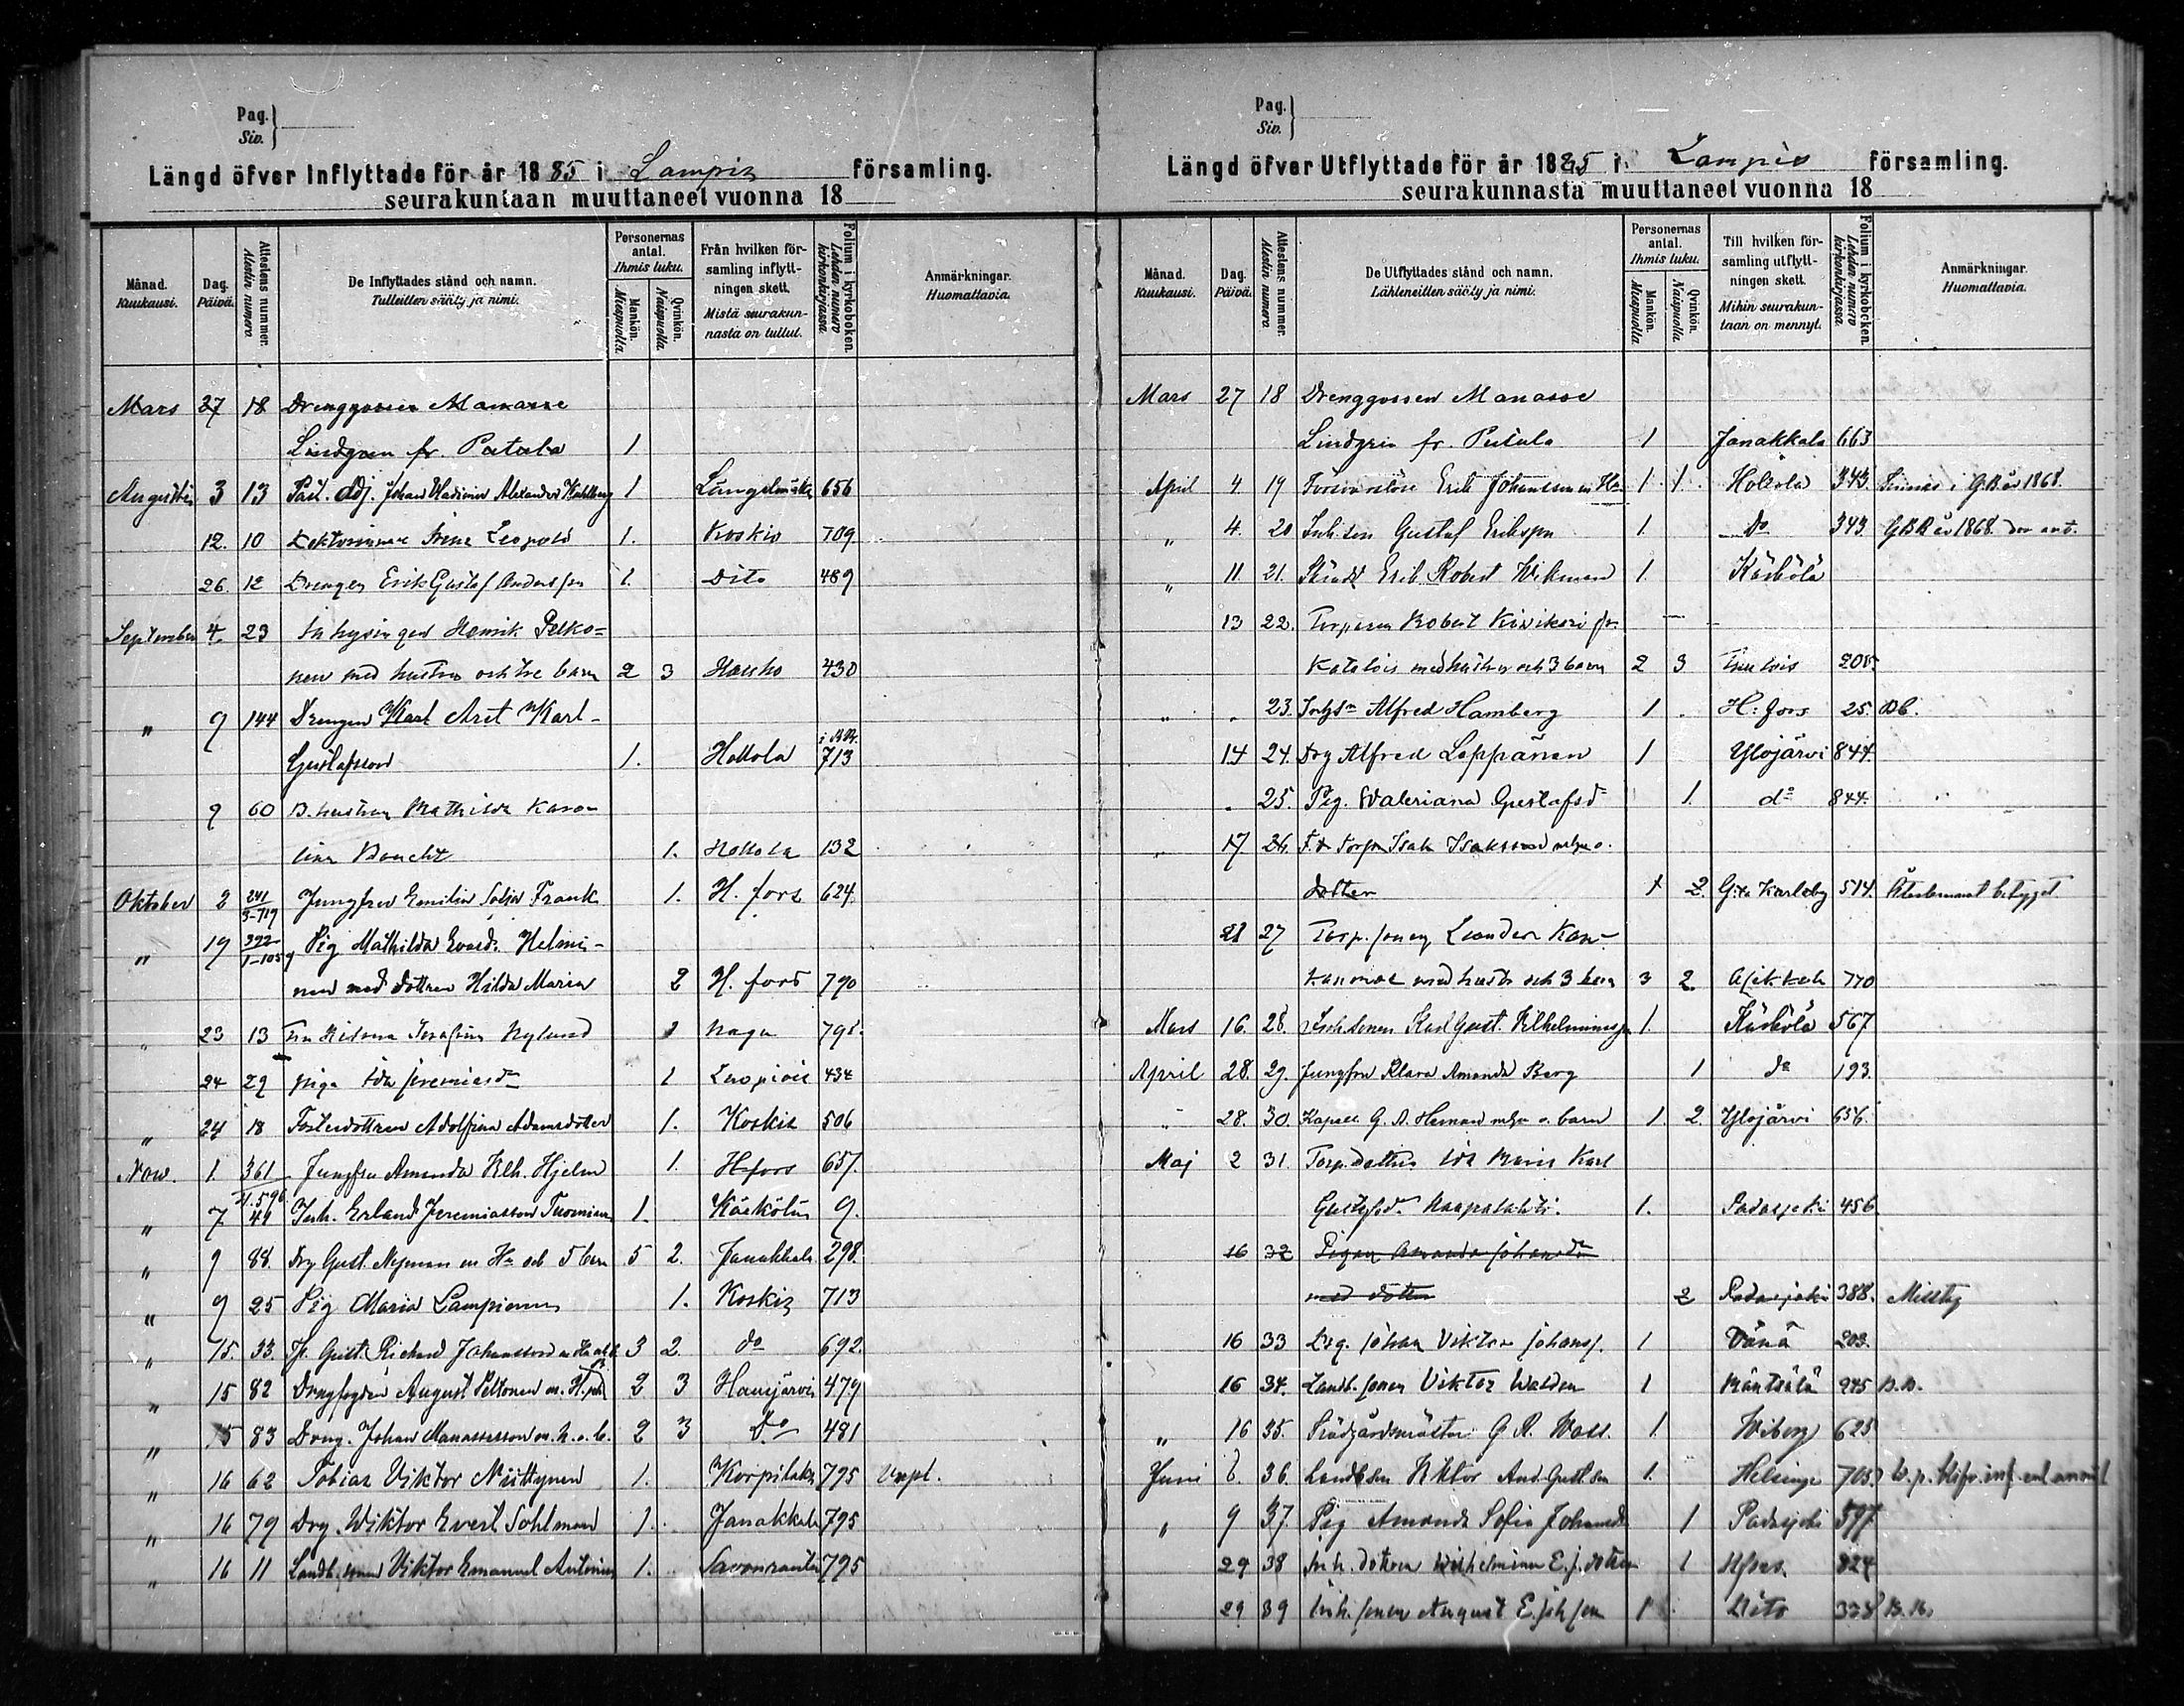 Pag.
Siv.
Längd öfver Inflyttade för år 1885 i Lampis församling.
seurakuntaan muuttaneet vuonna 18
Månad. Kuukausi.
Dag. Päivä.
Attestens nummer. Atestin numero
De Inflyttades stånd och namn.
Tulleitten sääty ja nimi.
Personernas antal. Ihmis luku.
Mankön. Miespuolia
Qvinkön. Naispuolia
Från hvilken församling inflyttningen skett.
Mistä seurakunnasta on tullut.
Folium i kyrkoboken. Lehden numero kirkonkirjassa
Anmärkningar. Huomattavia.
Mars 27 18 Drenggossen Manasse
Lindgren fr. Patala 1
Augusti 3 13 Past. Adj. Johan Wladimir Alexander Wahlberg 1 Längelmäki 656
12. 10 Leopold 1. Koskis 709
26. 12 Drengen Erik Gustaf Andersson 1. Dito 489
September 4. 23 Inhysingen Henrik Pelko=
nen med hustru och tre barn 2 3 Hauho 430
" 9 144 Drengen Karl Aret Karl-
Gustafsson 1. Hollola 713
9 60 B. hustrun Mathilda Karo-
lina 1. Hollola 132
Oktober 2 241 Jungfru Emilia Sofia Frank 1. H. fors 624
" 19 392 Pig Mathilda Evasdr Helmi-
nen med dottren Hilda Maria 2 H. fors 790
" 23 13 Serafina Nylund 795.
24 29 piga Ida Jeremiasdr 1 Luopiois 434
" 24 18 Fosterdottren Adolfina Adamsdotter 1. Koskis 506
Nov. 1. 361 Jungfru Amanda Wlh. Hjelm 1. H:fors 657.
" 7 49 Inh. Erland Jeremiasson Tuominen 1. Kärkölä 9.
" 9 88. Drg Gust. Nyman m Hu och 5 barn 5 2. Janakkala 298.
" 9 25 Pig Maria Lampinen 1. Koskis 713
" 15. 33. Gust. Richard Johansson 3 2 do 692.
" 15 82 Drengfogden August Peltonen m. H. 2 3 Hausjärvi 479
" 15 83 Dreng. Johan Manassesson m. h. o. b. 2 3 Do 481
" 16 62 Tobias Viktor Niittynen 1. Korpilaks 795
" 16 79 Drg. Wiktor Evert Sohlman 1. Janakkala 795
" 16 11 Landb. sonen Viktor Emanuel 1. Savonranta 795
Pag.
Siv.
Längd öfver Utflyttade för år 1885 i Lampis församling.
seurakunnasta muuttaneet vuonna 18
Månad. Kuukausi.
Dag. Päivä.
Attestens nummer. Atestin numero
De Utflyttades stånd och namn.
Lähteneitten sääty ja nimi.
Personernas antal. Ihmis luku.
Mankön. Miespuolia
Qvinkön. Naispuolia
Till hvilken församling utflyttningen skett.
Mihin seurakuntaan on mennyt.
Folium i kyrkoboken. Lehden numero kirkonkirjassa
Anmärkningar. Huomattavia.
Mars 27 18 Drenggossen Manasse
Lindgren fr. Patala 1 Janakkala 663
April 4. 19 Försvarslöse Erik Johansson m Hu 1. 1. Hollola 343. Finnes i GB år 1868.
" 4. 20 Inh. son Gustaf Eriksson 1. Do 343.
" 11. 21. Erik Robert Wikman 1. Kärkölä
13 22. Torparen Robert Kivikari fr.
Katalois med hustru och 3 barn 2 3 Tuulois 205.
" " 23. Alfred Hamberg 1 H:fors 25.
14 24. Drg Alfred Leppänen 1 Ylöjärvi 844.
" 25. Pig. Valeriana Gustafsdr 1. do 844.
" 17 26. Torp. Isak Isaksson
dotter 1 2. G:la Karleby 514. Återlemnat betyget
21 27 Torp. sonen Leander Kan-
med hustr och 3 barn 3 2. 770
Mars 16. 28. Inh. sonen Karl Gust. Wilhelminasson 1. Kärkölä 567
April 28. 29. Jungfru Klara Amanda Berg 1 do 193.
" 28. 30. Kapell. G. A. Heman m hu o. barn 1. 2. Ylöjärvi 656.
Maj 2 31. Torp. dottren Ida Maria Karl
Gustafsdr 1. Padasjoki 456
16 32 Pigan Amanda Johansdr
med dotter 2 Padasjoki 388. Misstag
16 33 Drg. Johan Viktor Johanss. 1 Vånå 203.
16 34. Landb. sonen Viktor Walden 1 Mäntsälä
" 16 35. Trädgårdsmästar G. A. Wass. 1. Wiborg 625
Juni 6. 36. Landb. son Viktor And. Gustson 1. Helsinge 705.
" 9 37. Pig Amanda Sofia Johansdr 1 Padasjoki 397
29 38 Inh. dottren Wilhelmina E. j. dotter 1 H:fors. 324
29 39 Inh. sonen August E. joh son 1 Dito